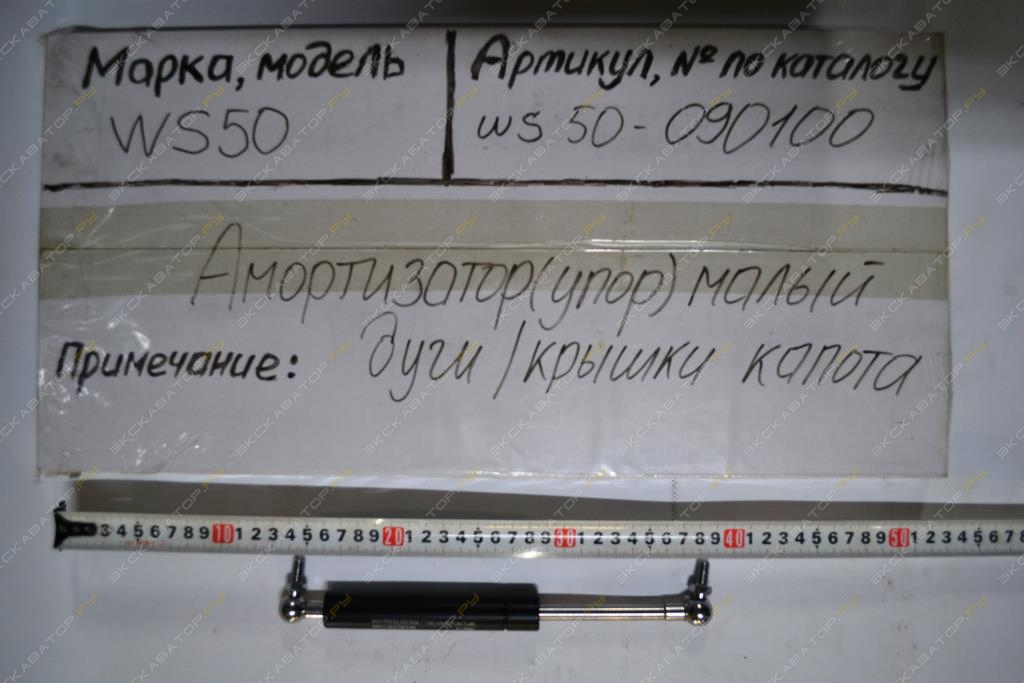 Марка, модель
Артикул, № по каталогу
WS50
ws 50-090100
Амортизатор(упор) малый
Примечание: дуги/крышки капота
3 4 5 6 7 8 9 10 1 2 3 4 5 6 7 8 9 20 1 2 3 4 5 6 7 8 9 30 1 2 3 4 5 6 7 8 9 40 1 2 3 4 5 6 7 8 9 50 1 2 3 4 5 6 7 8
ЭКСКАВАТОР.РУ